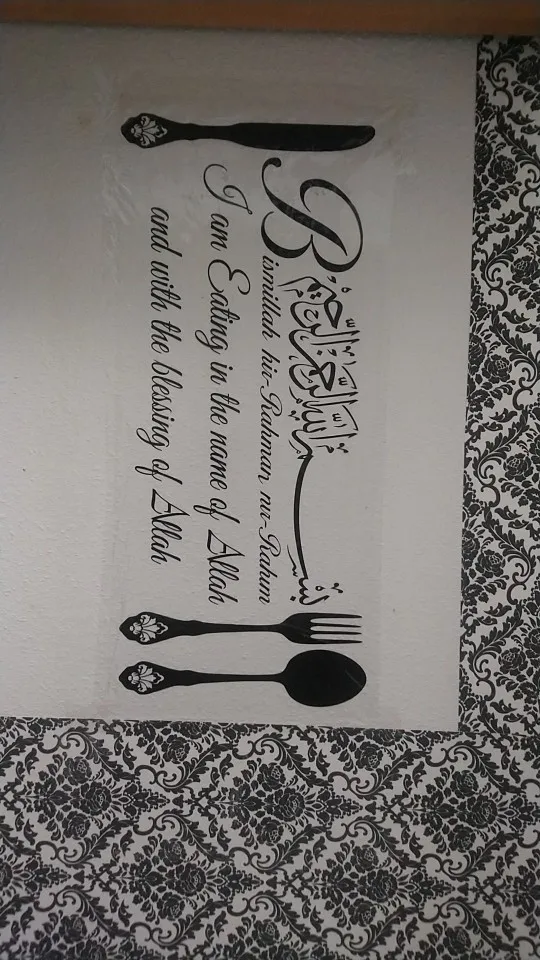 بسم الله الرحمن الرحيم
Bismillah hir-Rahman nir-Rahim
I am Eating in the name of Allah
and with the blessing of Allah